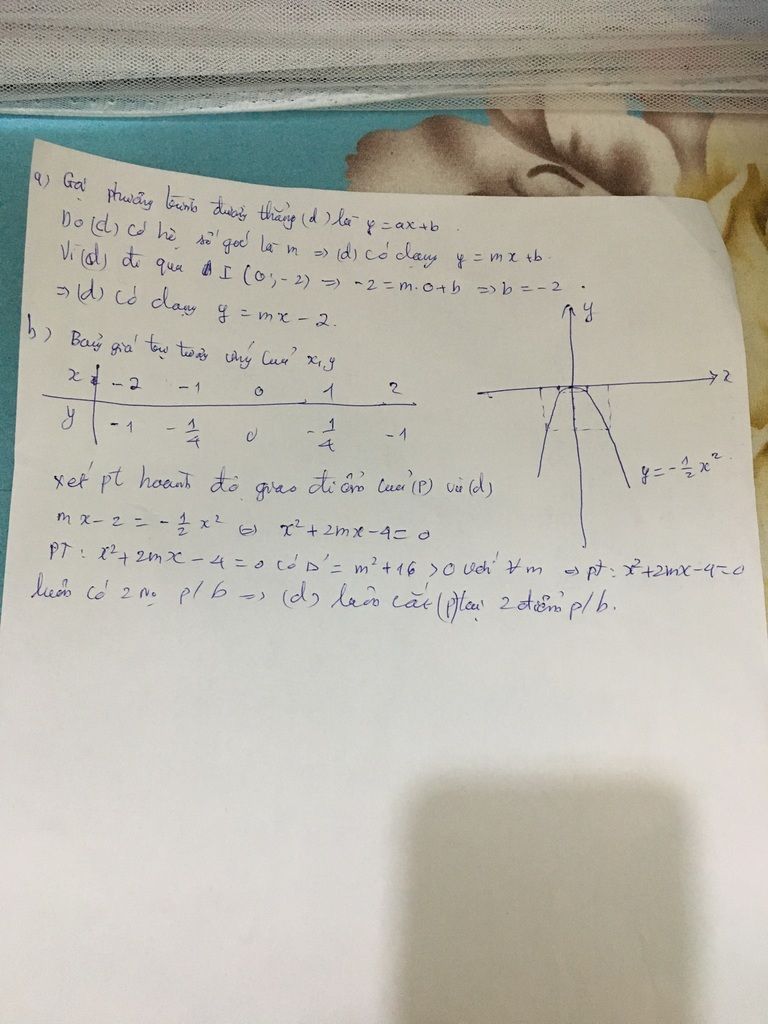 a) Gọi phương trình đường thẳng (d) là y = ax+b.
Do (d) có hệ số góc là m => (d) có dạng y = mx+b.
Vì (d) đi qua I (0;-2) => -2 = m.0+b => b = -2.
=> (d) có dạng y = mx - 2.
b) Bảng giá trị tương ứng của x, y
x -2 -1 0 1 2
y -1 -1/4 0 -1/4 -1
y
x
y = -1/2 x²
xét pt hoành độ giao điểm của (P) và (d)
mx - 2 = -1/2 x² ⇔ x² + 2mx - 4 = 0
PT: x² + 2mx - 4 = 0 có Δ' = m² + 16 > 0 với ∀m => pt: x²+2mx-4=0
luôn có 2 no p/b => (d) luôn cắt (P) tại 2 điểm p/b.